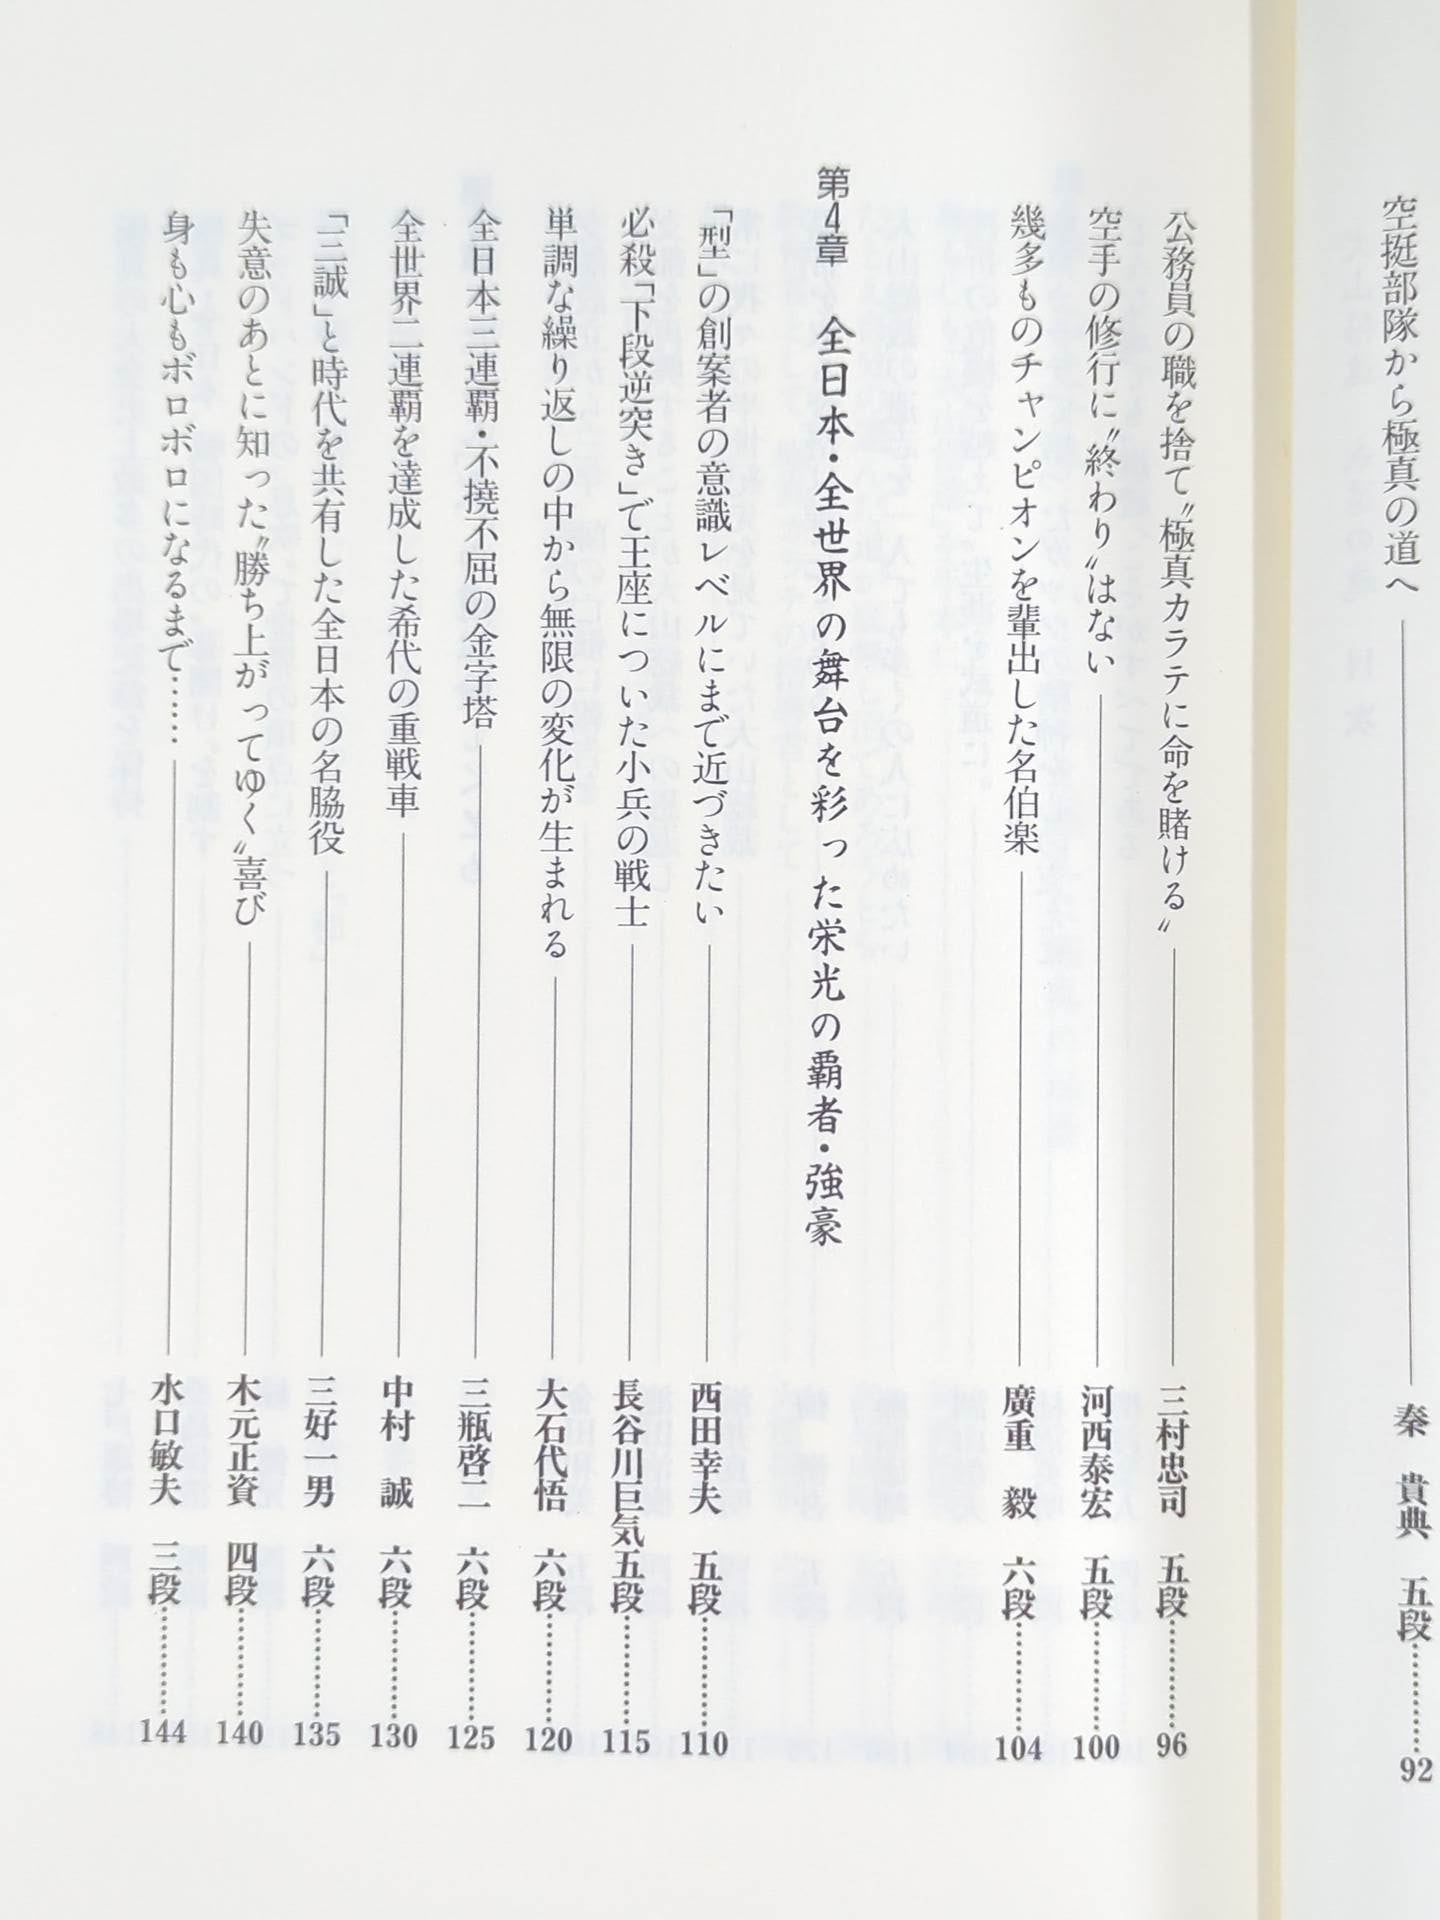 空挺部隊から極真の道へ 秦 貴典 五段………… 92
公務員の職を捨て〝極真カラテに命を賭ける〟 三村忠司 五段………… 96
空手の修行に〝終わり〟はない 河西泰宏 五段………… 100
幾多ものチャンピオンを輩出した名伯楽 廣重 毅 六段………… 104
第4章 全日本・全世界の舞台を彩った栄光の覇者・強豪
「型」の創案者の意識レベルにまで近づきたい 西田幸夫 五段………… 110
必殺「下段逆突き」で王座についた小兵の戦士 長谷川巨気 五段………… 115
単調な繰り返しの中から無限の変化が生まれる 大石代悟 六段………… 120
全日本三連覇・不撓不屈の金字塔 三瓶啓二 六段………… 125
全世界二連覇を達成した希代の重戦車 中村 誠 六段………… 130
「三誠」と時代を共有した全日本の名脇役 三好一男 六段………… 135
失意のあとに知った〝勝ち上がってゆく〟喜び 木元正資 四段………… 140
身も心もボロボロになるまで…… 水口敏夫 三段………… 144